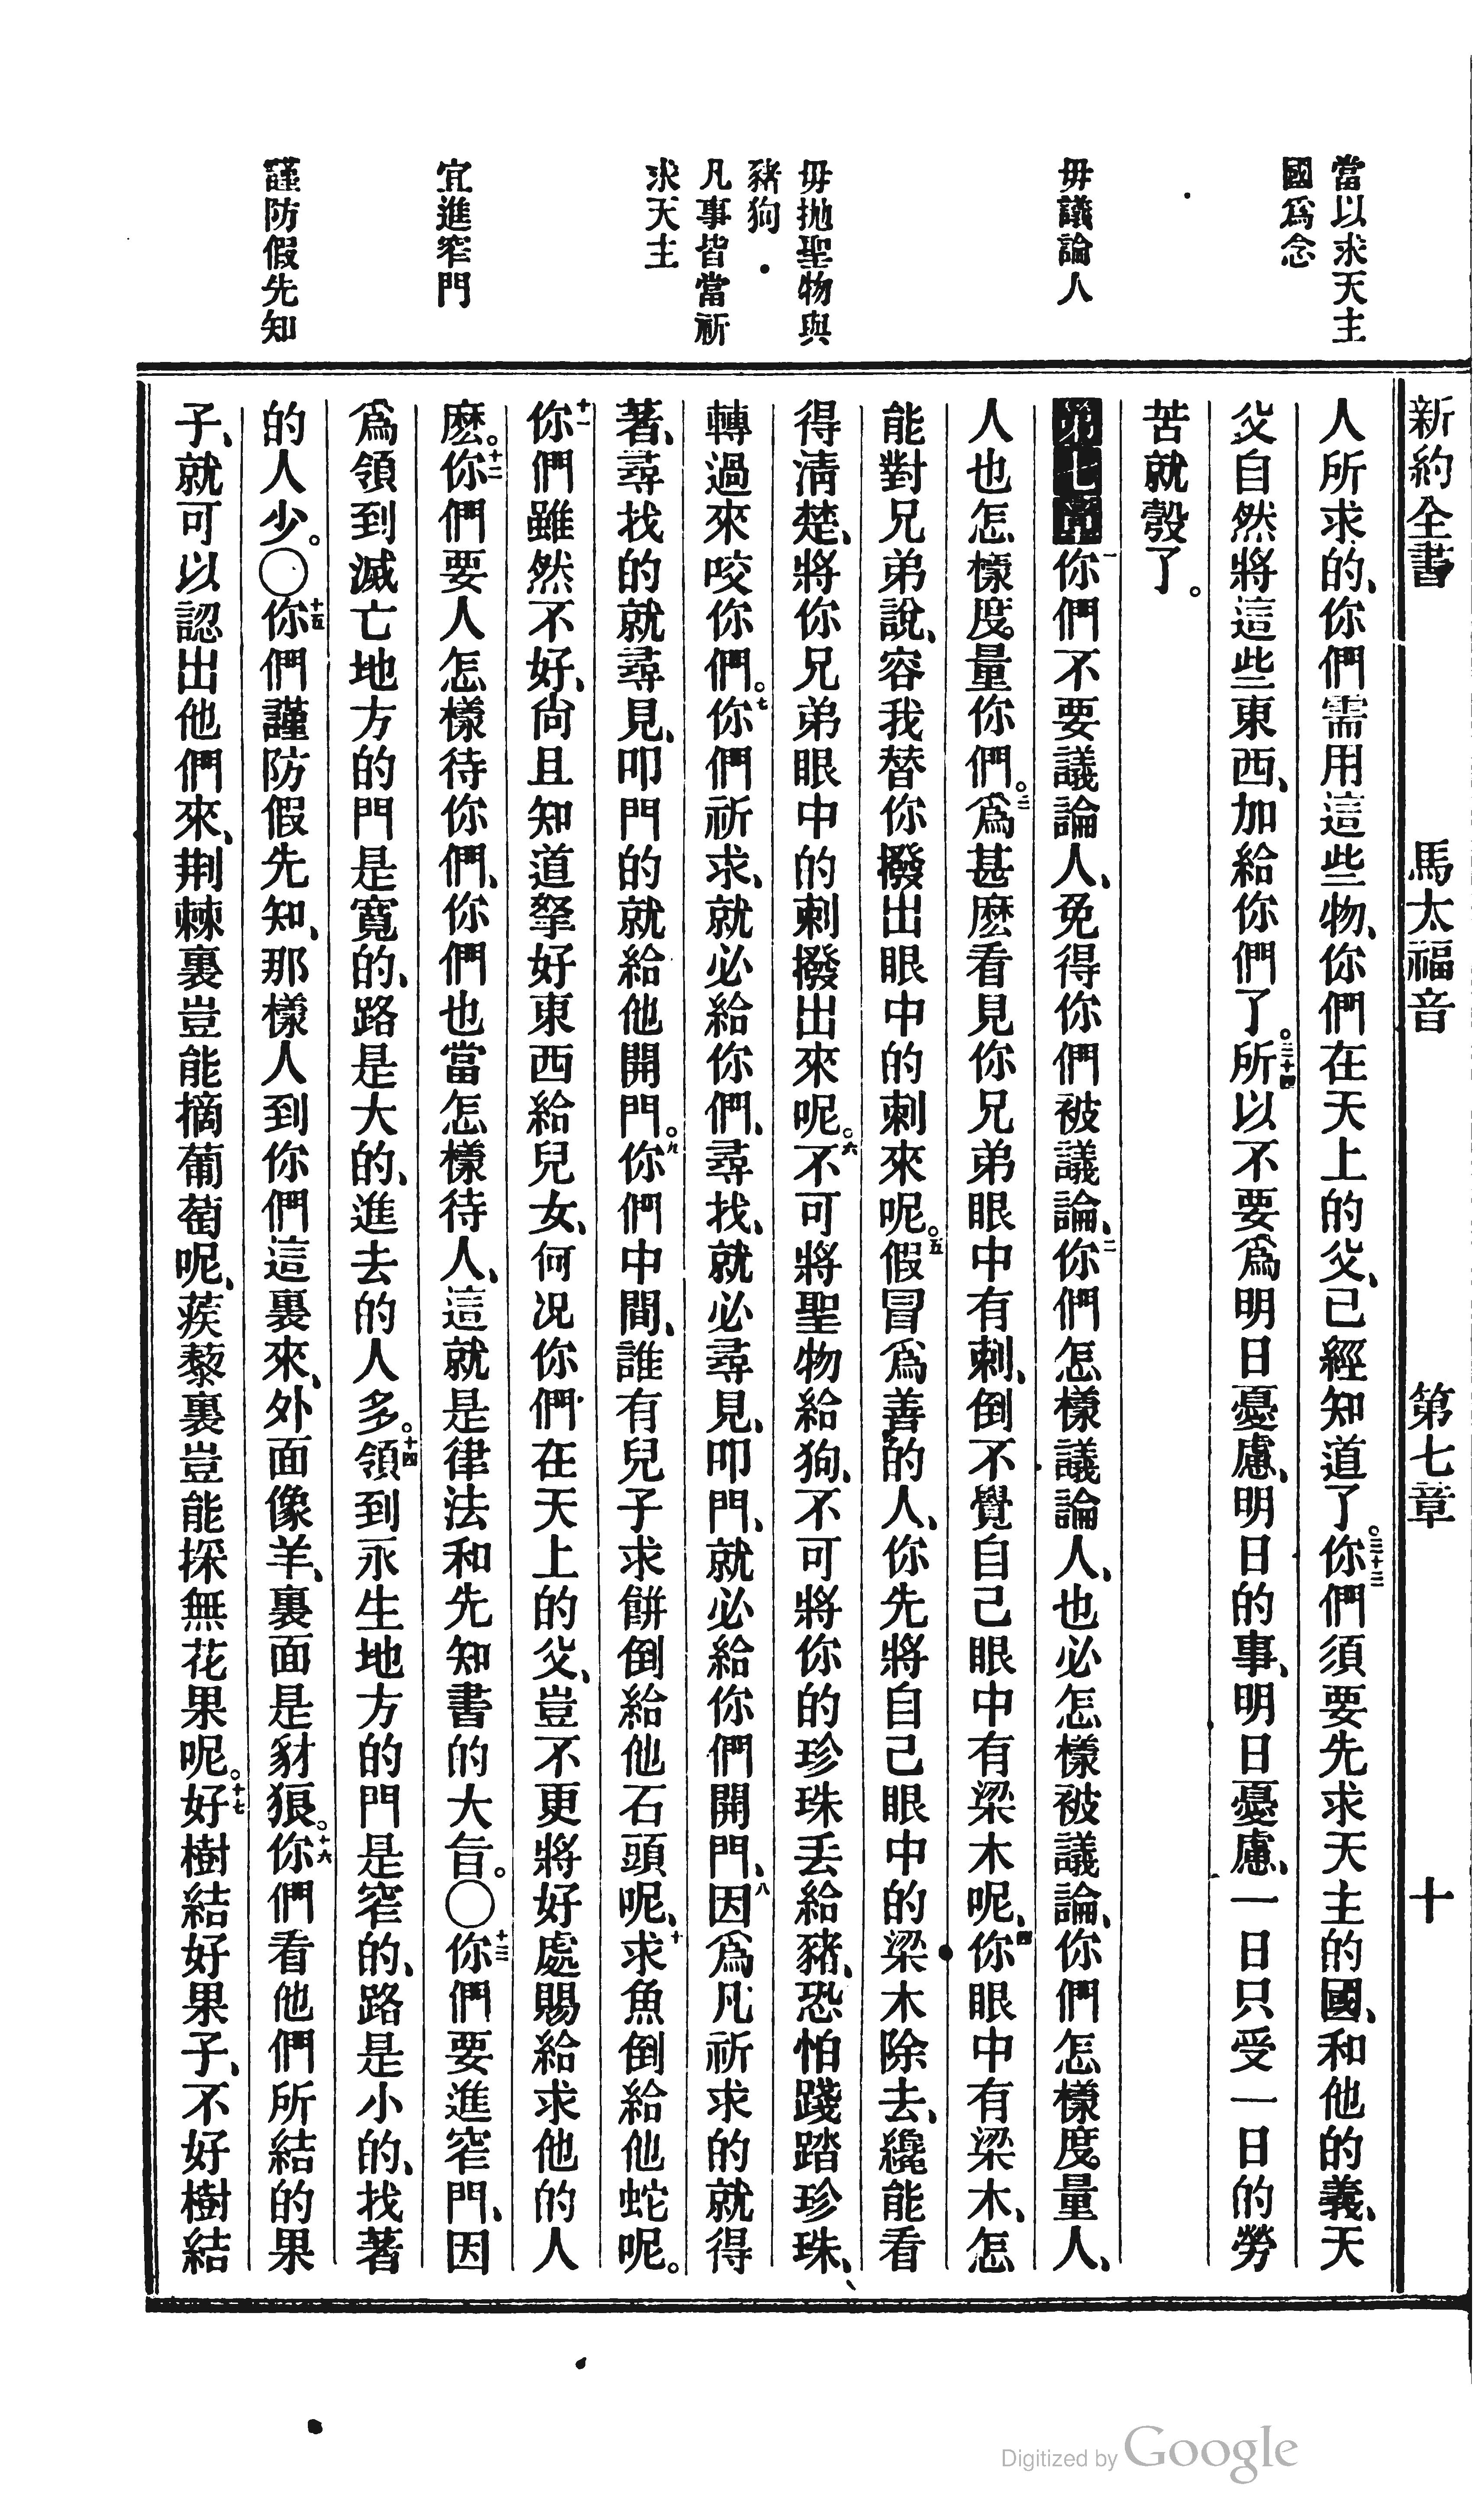 當以求天主
國爲念
毋議論人
毋拋聖物與
豬狗
凡事皆當祈
求天主
宜進窄門
謹防假先知
新約全書 馬太福音 第七章 十
人所求的、你們需用這些物、你們在天上的父、已經知道了。三十三你們須要先求天主的國、和他的義、天
父自然將這些東西、加給你們了。三十四所以不要爲明日憂慮、明日的事、明日憂慮、一日只受一日的勞
苦就彀了。
第七章一你們不要議論人、免得你們被議論、二你們怎樣議論人、也必怎樣被議論、你們怎樣度量人、
人也怎樣度量你們。三爲甚麽看見你兄弟眼中有刺、倒不覺自己眼中有梁木呢、四你眼中有梁木、怎
能對兄弟說、容我替你撥出眼中的刺來呢。五假冒爲善的人、你先將自己眼中的梁木除去、纔能看
得淸楚、將你兄弟眼中的刺撥出來呢。六不可將聖物給狗、不可將你的珍珠丢給豬、恐怕踐踏珍珠、
轉過來咬你們。七你們祈求、就必給你們、尋找、就必尋見、叩門、就必給你們開門、八因爲凡祈求的就得
著、尋找的就尋見、叩門的就給他開門。九你們中間、誰有兒子求餅倒給他石頭呢、十求魚倒給他蛇呢。
十一你們雖然不好、尙且知道拏好東西給兒女、何况你們在天上的父、豈不更將好處賜給求他的人
麽。十二你們要人怎樣待你們、你們也當怎樣待人、這就是律法和先知書的大旨。〇十三你們要進窄門、因
爲領到滅亡地方的門是寬的、路是大的、進去的人多。十四領到永生地方的門是窄的、路是小的、找著
的人少。〇十五你們謹防假先知、那樣人到你們這裏來、外面像羊、裏面是豺狼。十六你們看他們所結的果
子、就可以認出他們來、荆棘裏豈能摘葡萄呢、蒺藜裏豈能採無花果呢。十七好樹結好果子、不好樹結
Digitized by Google